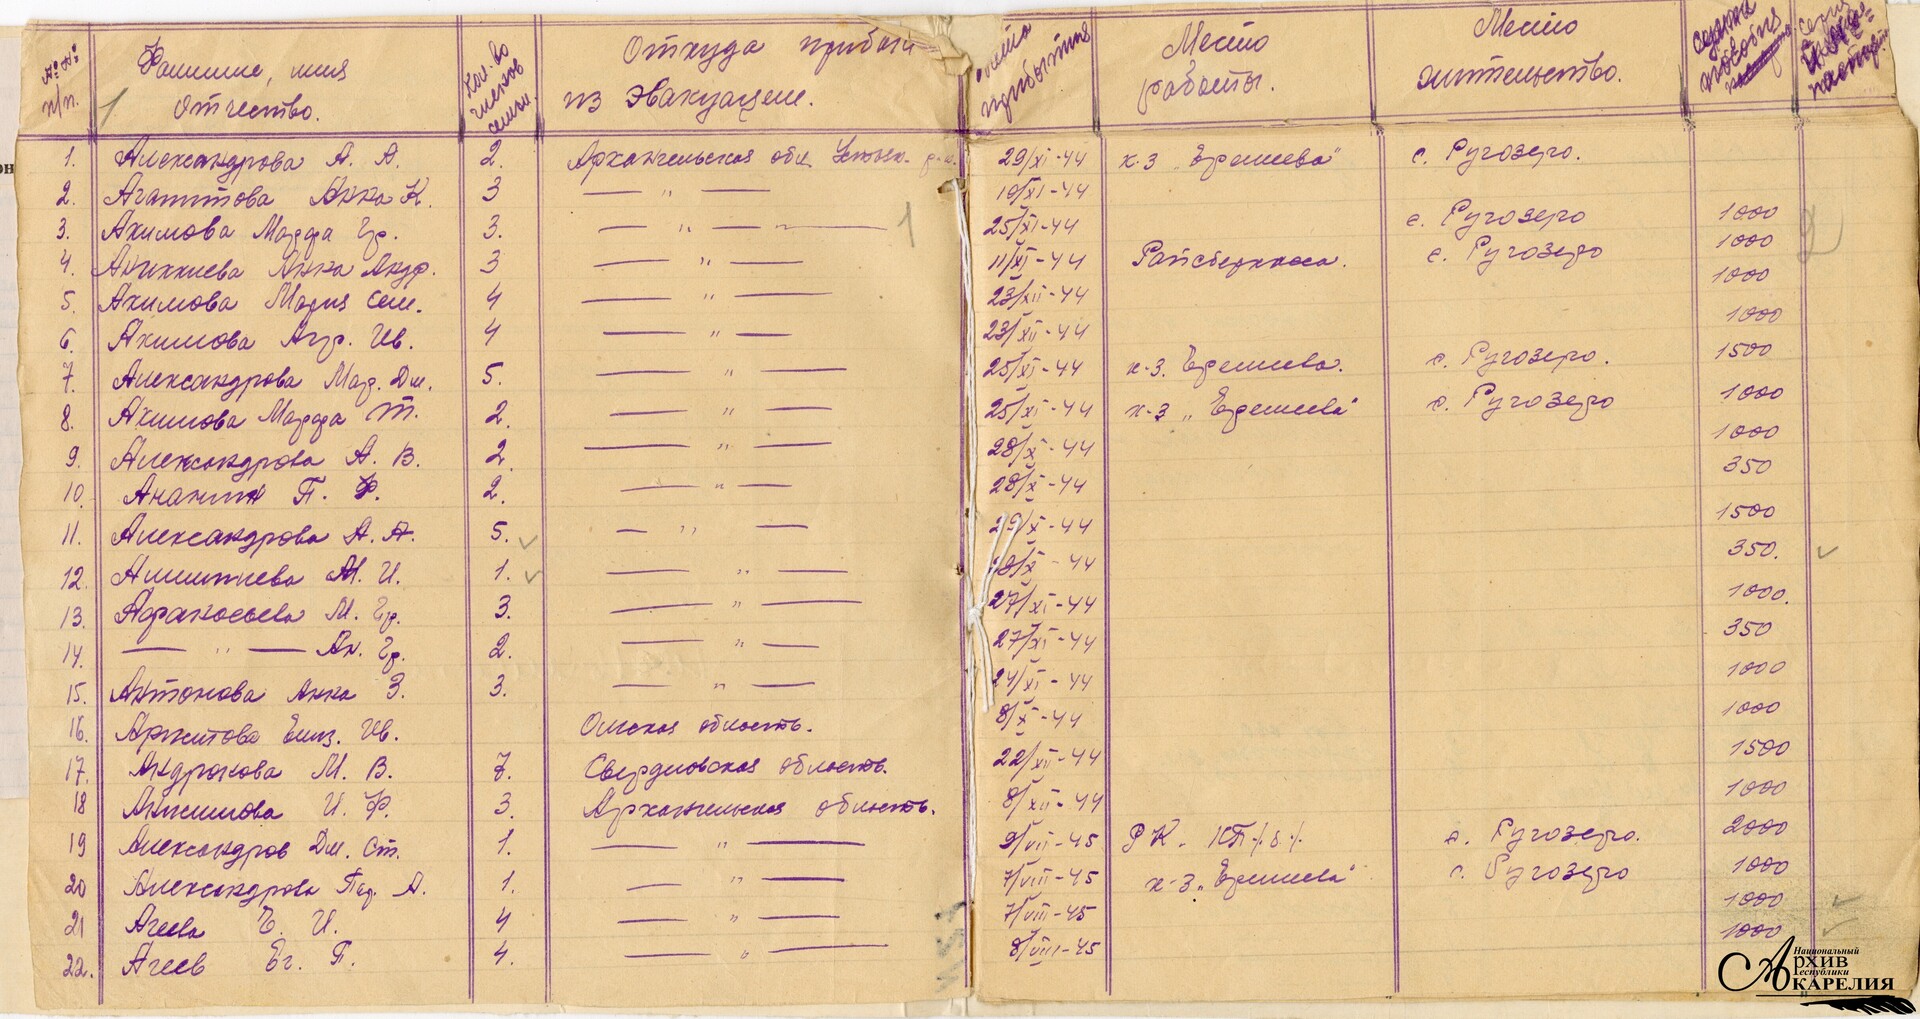 №№ п/п. Фамилие, имя отчество. Кол-во членов семьи. Откуда прибыл из эвакуации. прибытия Место работы. Место жительство.
1. Александрова А. А. 2. Архангельская обл. 29/XI-44 к-з „Ерешева" с. Ругозеро.
2. Агаптова Анна К. 3 — " — 19/XI-44
3. Акимова Марфа Гр. 3. — " — 25/XI-44 с. Ругозеро 1000
4. Аникиева Анна Андр. 3 — " — 11/XI-44 Райсберкасса. с. Ругозеро 1000
5. Акимова Мария Сем. 4 — " — 23/XII-44 1000
6. Акимова Агр. Ив. 4 — " — 23/XII-44 1000
7. Александрова Мар. Дм. 5. — " — 25/XI-44 к-з. Ерешева. с. Ругозеро. 1500
8. Акимова Марфа Т. 2. — " — 25/XI-44 к-з „Ерешева" с. Ругозеро 1000
9. Александрова А. В. 2. — " — 28/X-44 1000
10. Ананин П. Ф. 2. — " — 28/X-44 350
11. Александрова А. А. 5. — " — 29/X-44 1500
12. М. И. 1. — " — 350.
13. Афанасьева М. Гр. 3. — " — 27/XI-44 1000.
14. — " — Ан. Гр. 2. — " — 27/XI-44 350
15. Антонова Анна З. 3. — " — 24/XI-44 1000
16. Ив. Омская область. 8/X-44 1000
17. Андронова М. В. 7. Свердловская область. 22/XII-44 1500
18 И. Ф. 3. Архангельская область. 8/XII-44 1000
19 Александров Дм. Ст. 1. — " — 9/VII-45 РК. КП/б/ с. Ругозеро. 2000
20 Александрова Пар. А. 1. — " — 7/VIII-45 к-з „Ерешева" с. Ругозеро 1000
21 Агеева Е. И. 4 — " — 7/VIII-45 1000
22. Агеев Ег. Г. 4. — " — 8/VIII-45 1000
Национальный
Архив
Республики
Карелия